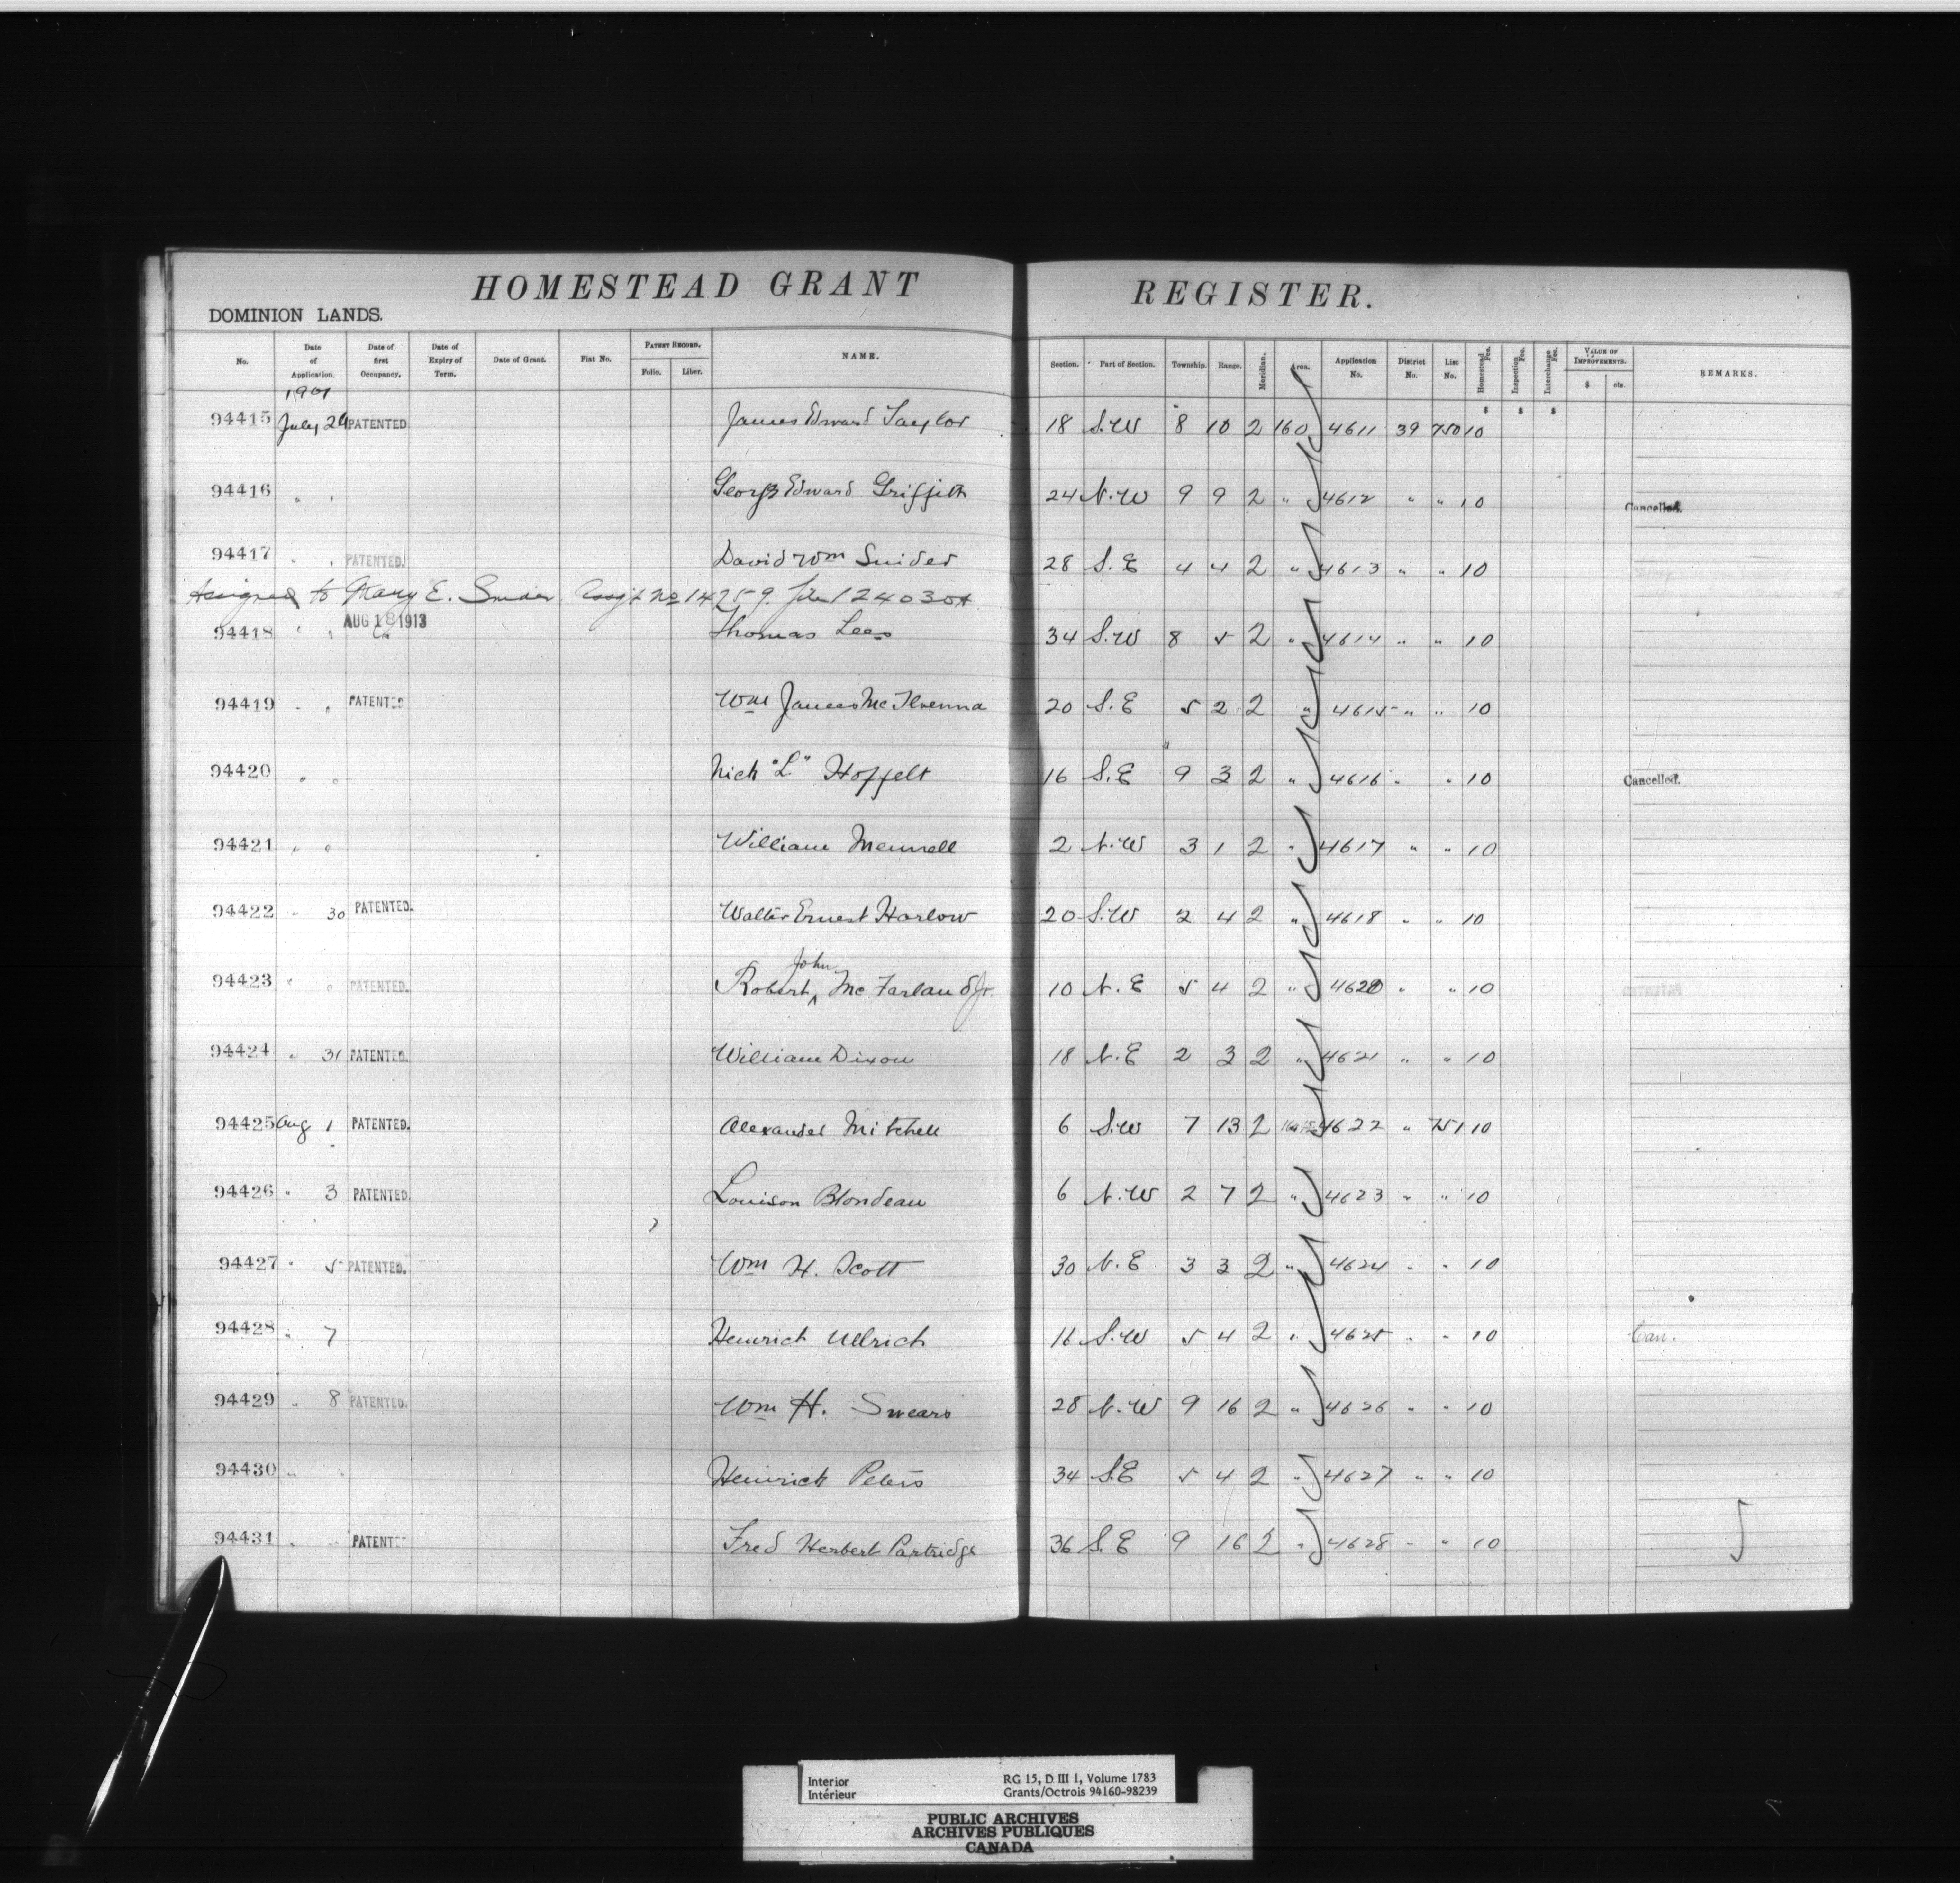 HOMESTEAD GRANT REGISTER.
DOMINION LANDS.
No. Date of Application. Date of first Occupancy. Date of Expiry of Term. Date of Grant. Fiat No. PATENT RECORD. Folio. Liber. NAME. Section. Part of Section. Township. Range. Meridian. Area. Application No. District No. List No. Homestead Fee. Inspection Fee. Interchange Fee. VALUE OF IMPROVEMENTS. $ cts. REMARKS.
1901
$ $ $
94415 July 29 PATENTED James Edward Taylor 18 S.W 8 10 2 160 4611 39 750 10
94416 " " George Edward Griffith 24 N.W 9 9 2 " 4612 " " 10 Cancelled.
94417 " " PATENTED. David Wm Snider 28 S.E 4 4 2 " 4613 " " 10
Assigned to Mary E. Snider Assgt No 14259. file 124030A
AUG 18 1913
94418 " " Thomas Lees 34 S.W 8 5 2 " 4614 " " 10
94419 " " PATENTED Wm James McIlvenna 20 S.E 5 2 2 " 4615 " " 10
94420 " " Nick "L" Hoffelt 16 S.E 9 3 2 " 4616 " " 10 Cancelled.
94421 " " William Mennell 2 N.W 3 1 2 " 4617 " " 10
94422 " 30 PATENTED. Walter Ernest Harlow 20 S.W 2 4 2 " 4618 " " 10
John
94423 " " PATENTED. Robert ^ McFarland Jr. 10 N.E 5 4 2 " 4620 " " 10
94424 " 31 PATENTED. William Dixon 18 N.E 2 3 2 " 4621 " " 10
94425 Aug 1 PATENTED. Alexander Mitchell 6 S.W 7 13 2 4622 " 751 10
94426 " 3 PATENTED. Louison Blondeau 6 N.W 2 7 2 " 4623 " " 10
94427 " 5 PATENTED. Wm H. Scott 30 N.E 3 3 2 " 4624 " " 10
94428 " 7 Heinrich Ullrich 16 S.W 5 4 2 " 4625 " " 10 Can.
94429 " 8 PATENTED. Wm H. Swears 28 N.W 9 16 2 " 4626 " " 10
94430 " " Heinrich Peters 34 S.E 5 4 2 " 4627 " " 10
94431 " " PATENT Fred Herbert Partridge 36 S.E 9 16 2 " 4628 " " 10
Interior RG 15, D III 1, Volume 1783
Intérieur Grants/Octrois 94160-98239
PUBLIC ARCHIVES
ARCHIVES PUBLIQUES
CANADA